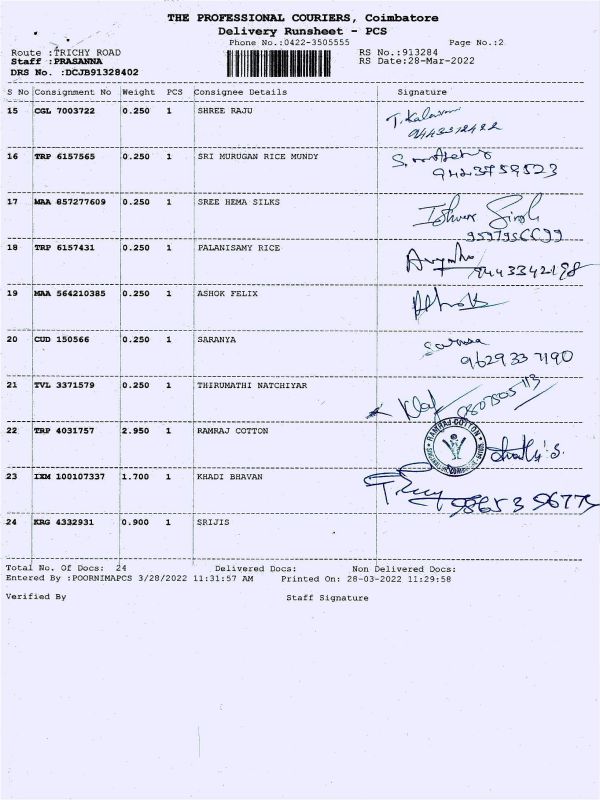 THE PROFESSIONAL COURIERS, Coimbatore
Delivery Runsheet - PCS
Phone No.:0422-3505555 Page No.:2
Route :TRICHY ROAD RS No.:913284
Staff :PRASANNA RS Date:28-Mar-2022
DRS No. :DCJB91328402
S No Consignment No Weight PCS Consignee Details Signature
15 CGL 7003722 0.250 1 SHREE RAJU
16 TRP 6157565 0.250 1 SRI MURUGAN RICE MUNDY
9443759523
17 MAA 857277609 0.250 1 SREE HEMA SILKS Ishwar Singh
18 TRP 6157431 0.250 1 PALANISAMY RICE
9443342198
19 MAA 564210385 0.250 1 ASHOK FELIX Ashok
20 CUD 150566 0.250 1 SARANYA
9629337190
21 TVL 3371579 0.250 1 THIRUMATHI NATCHIYAR
22 TRP 4031757 2.950 1 RAMRAJ COTTON RAMRAJ COTTON
23 IXM 100107337 1.700 1 KHADI BHAVAN
24 KRG 4332931 0.900 1 SRIJIS
Total No. Of Docs: 24 Delivered Docs: Non Delivered Docs:
Entered By :POORNIMAPCS 3/28/2022 11:31:57 AM Printed On: 28-03-2022 11:29:58
Verified By Staff Signature